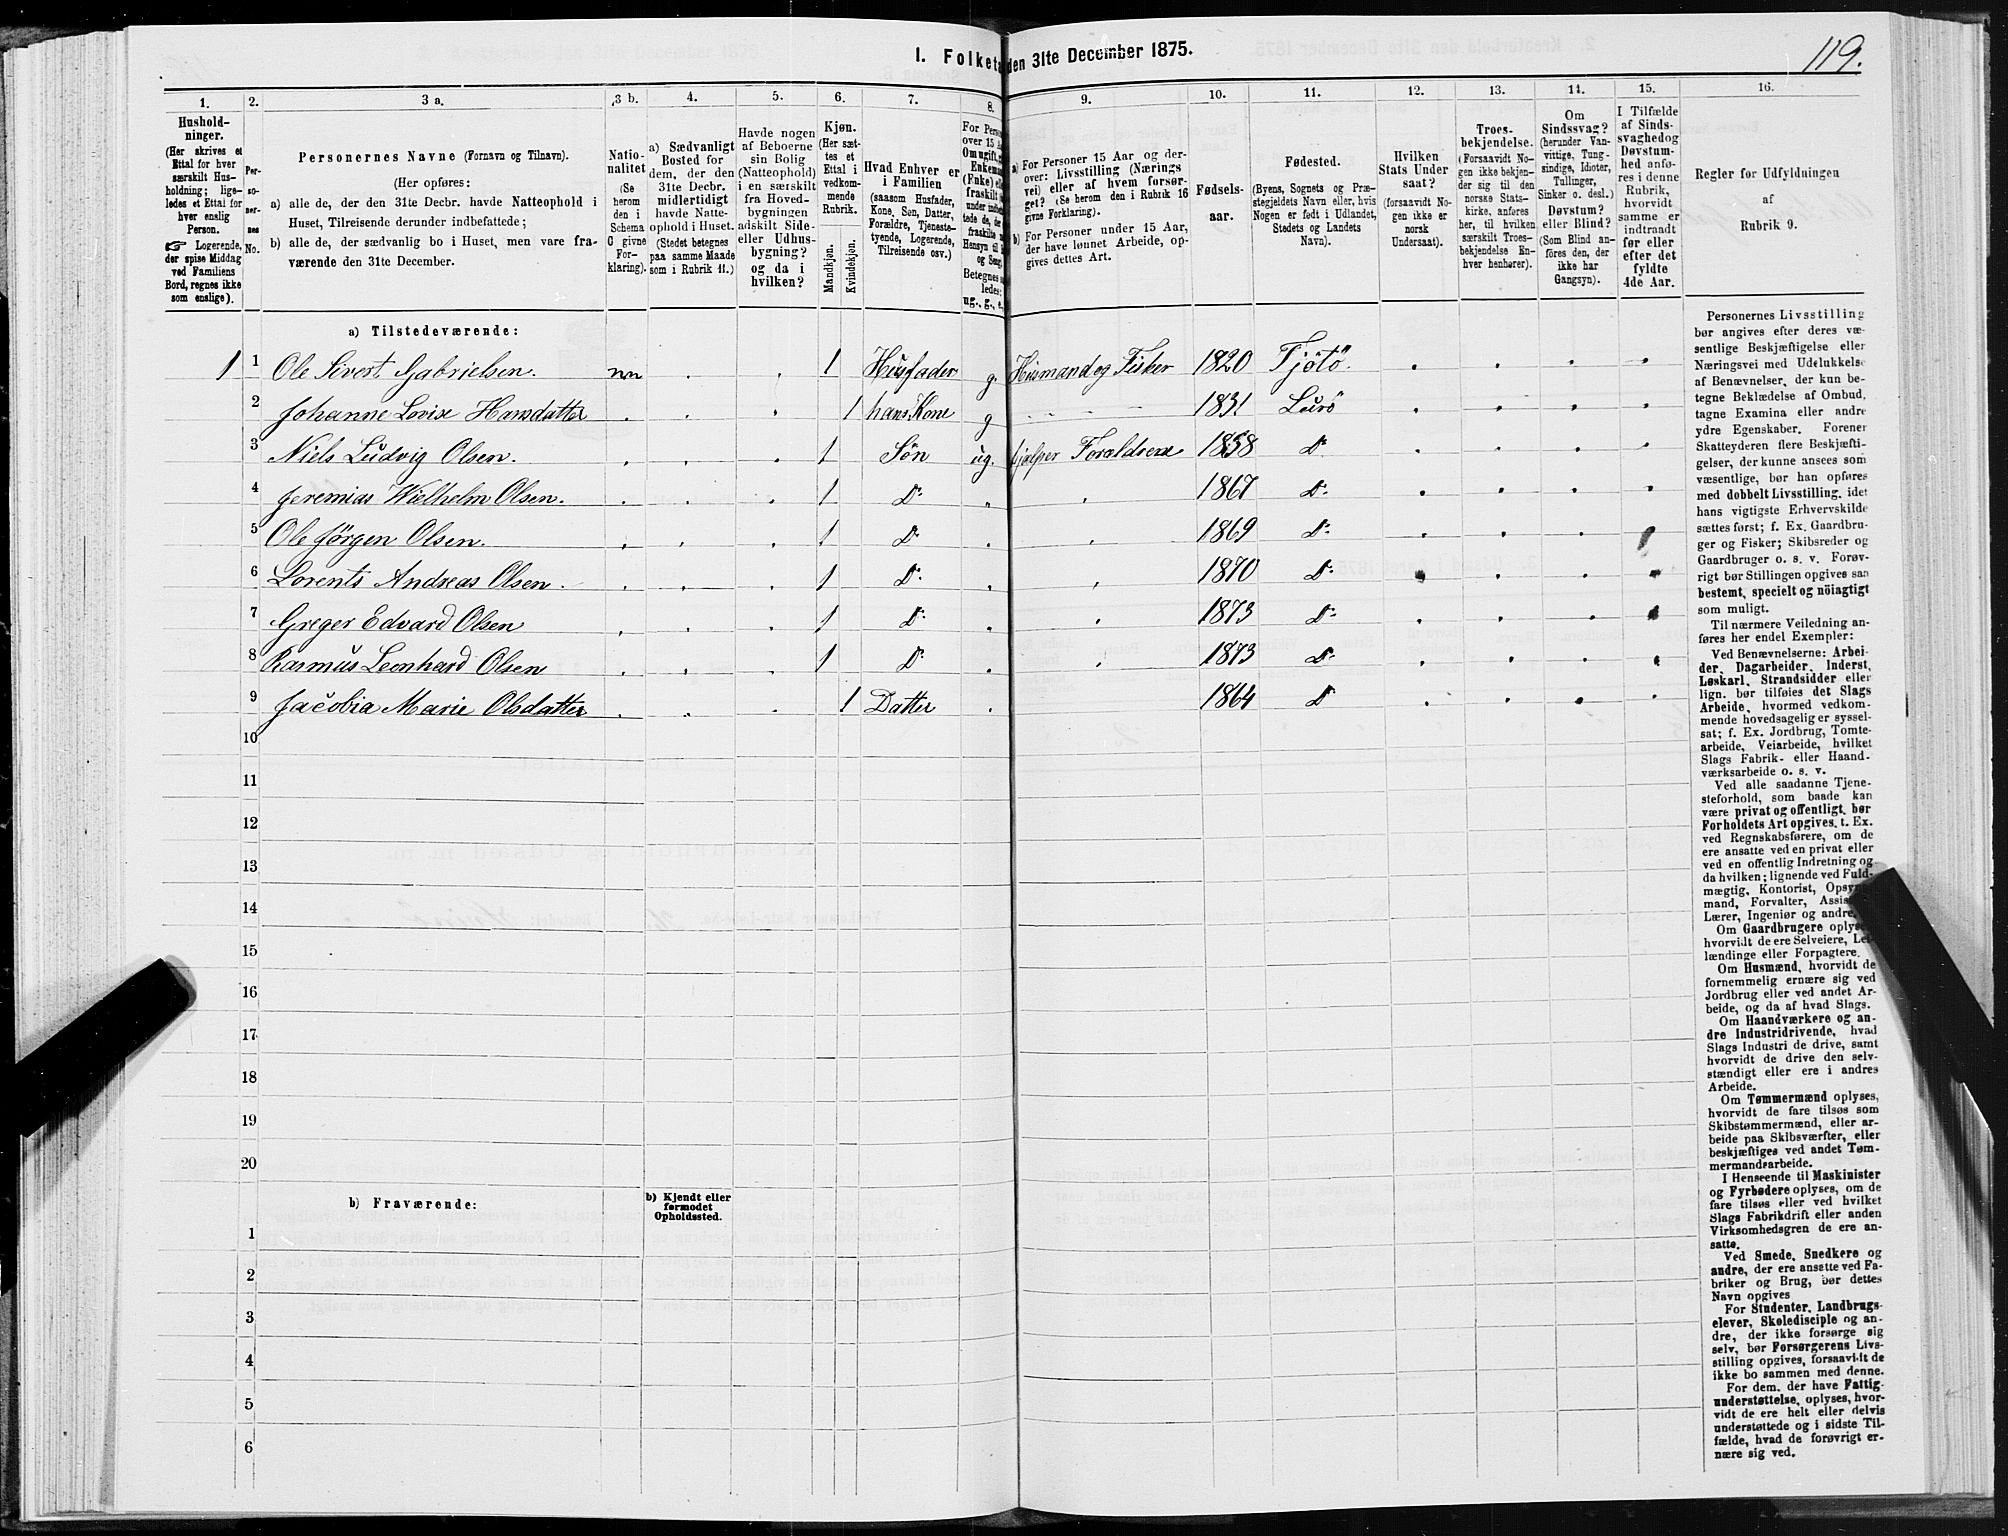 I. Folketæ
den 31te December 1875.
119.
1.
2.
3 a.
3 b.
4.
5.
6.
7.
8.
9.
10.
11.
12.
13.
14.
15.
16.
Hushold-
ninger.
(Her skrives et
Ettal for hver
særskilt Hus-
holdning; lige-
ledes et Ettal for
hver enslig
Person.
☞ Logerende,
der spise Middag
ved Familiens
Bord, regnes ikke
som enslige).
Per-
so-
ner-
nes
No.
Personernes Navne (Fornavn og Tilnavn).
(Her opføres:
a) alle de, der den 31te Decbr. havde Natteophold i
Huset, Tilreisende derunder indbefattede;
b) alle de, der sædvanlig bo i Huset, men vare fra-
værende den 31te December.
Natio-
nalitet
(Se
herom
den i
Schema
C givne
For-
klaring).
a) Sædvanligt
Bosted for
dem, der den
31te Decbr.
midlertidigt
havde Natte-
ophold i Huset.
(Stedet betegnes
paa samme Maade
som i Rubrik 11.)
Havde nogen
af Beboerne
sin Bolig
(Natteophold)
i en særskilt
fra Hoved-
bygningen
adskilt Side-
eller Udhus-
bygning?
og da i
hvilken?
Kjøn.
(Her sæt-
tes et
Ettal i
vedkom-
mende
Rubrik.
Mandkjøn.
Kvindekjøn.
Hvad Enhver er
i Familien
(saasom Husfader,
Kone, Søn, Datter,
Forældre, Tjeneste-
tyende, Logerende,
Tilreisende osv.)
For Perso
over 15 A
Om ugift,
Enkema
(Fnke) el
fraskilt
under indb
tede de, de
fraskilte
Hensyn til
og Seng.
Betegnes
ledes:
ug., g., e.
a) For Personer 15 Aar og der-
over: Livsstilling (Nærings
vei) eller af hvem forsør-
get? (Se herom den i Rubrik 16
givne Forklaring).
b) For Personer under 15 Aar,
der have lønnet Arbeide, op-
gives dettes Art.
Fødsels-
aar.
Fødested.
(Byens, Sognets og Præ-
stegjeldets Navn eller, hvis
Nogen er født i Udlandet,
Stedets og Landets
Navn).
Hvilken
Stats Under
saat?
(forsaavidt No-
gen ikke er
norsk
Undersaat).
Troes-
bekjendelse.
(Forsaavidt No-
gen ikke bekjen-
der sig til den
norske Stats-
kirke, anføres
her, til hvilken
særskilt Troes-
bekjendelse En-
hver henhører).
Om
Sindssvag?
(herunder Van-
vittige, Tung-
sindige, Idioter,
Tullinger,
Sinker o. desl.)
Døvstum?
eller Blind?
(Som Blind an-
føres den, der
ikke har
Gangsyn).
I Tilfælde
af Sinds-
svaghedog
Døvstum-
hed anfø-
res i denne
Rubrik,
hvorvidt
samme er
indtraadt
før eller
efter det
fyldte
4de Aar.
Regler for Udfyldningen
af
Rubrik 9.
a) Tilstedeværende:
1 1 Ole Sivert Gabrielsen. nn 1 Husfader g. Husmand og Fisker 1820 Tjøtø.
2 Johanne Lovise Hansdatter 1 hans Kone g 1831 Lurø
3 Niels Ludvig Olsen. 1 Søn ug. hjælper Forældrene 1858 Do
4 Jeremias Wielhelm Olsen. 1 Do 1867 Do
5 Ole Jørgen Olsen. 1 Do 1869 Do
6 Lorents Andreas Olsen. 1 Do 1870 Do
7 Greger Edvard Olsen 1 Do 1873 Do
8 Rasmus Leonhard Olsen 1 Do 1873 Do
9 Jacobia Marie Olsdatter 1 Datter 1864 Do
10
11
12
13
14
15
16
17
18
19
20
b) Fraværende:
b) Kjendt eller
formodet
Opholdssted.
1
2
3
4
5
6
Personernes Livsstilling
bør angives efter deres væ-
sentlige Beskjæftigelse eller
Næringsvei med Udelukkelse
af Benævnelser, der kun be-
tegne Beklædelse af Ombud,
tagne Examina eller andre
ydre Egenskaber. Forener
Skatteyderen flere Beskjæfti-
gelser, der kunne ansees som
væsentlige, bør han opføres
med dobbelt Livsstilling, idet
hans vigtigste Erhvervskilde
sættes først; f. Ex. Gaardbru-
ger og Fisker; Skibsreder og
Gaardbruger o. s. v. Forøv-
rigt bør Stillingen opgives saa
bestemt, specielt og nöiagtigt
som muligt.
Til nærmere Veiledning an-
føres her endel Exempler:
Ved Benævnelserne: Arbei-
der, Dagarbeider, Inderst,
Løskarl, Strandsidder eller
lign. bør tilføies det Slags
Arbeide, hvormed vedkom-
mende hovedsagelig er syssel-
sat; f. Ex. Jordbrug, Tomte-
arbeide, Veiarbeide, hvilket
Slags Fabrik- eller Haand-
værksarbeide o. s. v.
Ved alle saadanne Tjene-
steforhold, som baade kan
være privat og offentligt, bør
Forholdets Art opgives, t. Ex.
ved Regnskabsførere, om de
ere ansatte ved en privat eller
ved en offentlig Indretning og
da hvilken; lignende ved Fuld-
mægtig, Kontorist, Opsyns-
mand, Forvalter, Assis
Lærer, Ingeniør og andre.
Om Gaardbrugere oplyses,
hvorvidt de ere Selveiere, Lei-
lændinge eller Forpagtere.
Om Husmænd, hvorvidt de
fornemmelig ernære sig ved
Jordbrug eller ved andet Ar-
beide, og da af hvad Slags.
Om Haandværkere og an-
dre Industridrivende, hvad
Slags Industri de drive, samt
hvorvidt de drive den selv-
stændigt eller ere i andres
Arbeide.
Om Tømmermænd oplyses,
hvorvidt de fare tilsøs som
Skibstømmermænd, eller ar-
beide paa Skibsværfter, eller
beskjæftiges ved andet Tøm-
mermandsarbeide.
I Henseende til Maskinister
og Fyrbødere oplyses, om de
fare tilsøs eller ved hvilket
Slags Fabrikdrift eller anden
Virksomhedsgren de ere an-
satte.
Ved Smede, Snedkere og
andre, der ere ansatte ved Fa-
briker og Brug, bør dettes
Navn opgives
For Studenter, Landbrugs-
elever, Skoledisciple og an-
dre, der ikke forsørge sig
selv, bør Forsørgerens Livs-
stilling opgives, forsaavidt de
ikke bo sammen med denne.
For dem, der have Fattig-
understøttelse, oplyses, hvor-
vidt de ere helt eller delvis
understøttede og i sidste Til-
fælde, hvad de forøvrigt er-
nære sig ved.